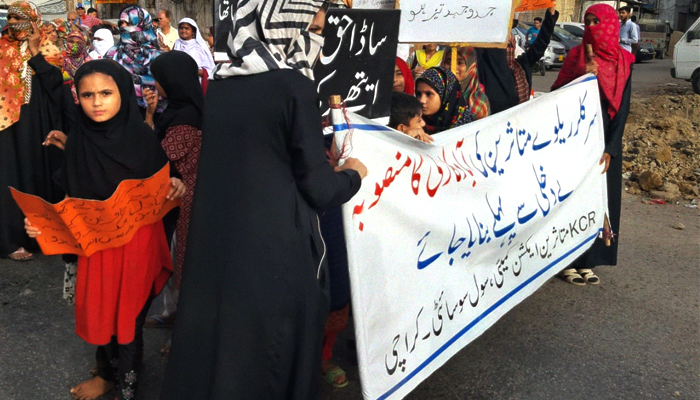 جدوجہد تیز ہو
ساڈا حق
ایتھے رکھ
سرکلر ریلوے متاثرین کی آبادکاری کا منصوبہ
بے دخلی سے پہلے بنایا جائے
KCR متاثرین ایکشن کمیٹی، سول سوسائٹی۔ کراچی